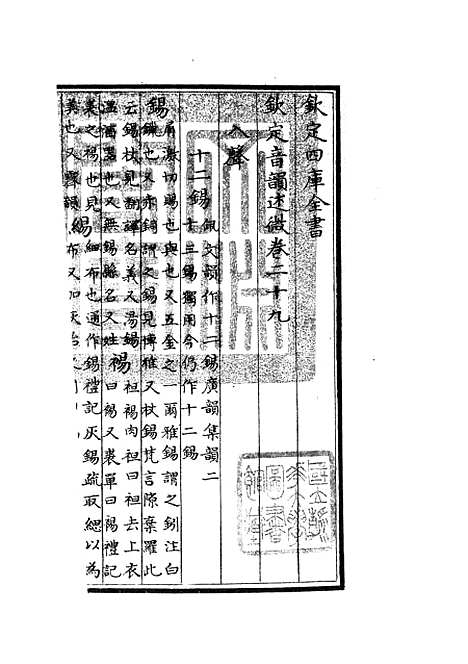 欽定四庫全書
欽定音韻述微卷二十九
入聲
十二錫
佩文韻作十二錫廣韻集韻二
十三錫獨用今仍作十二錫
錫
屑激切賜也與也又五金之一爾雅錫謂之鈏注白
鑞也又赤銅謂之錫見博雅又杖錫梵言隙棄羅此
云錫杖見翻譯名義又湯錫
溫酒器也又無錫縣名又姓
裼
袒裼肉袒曰袒去上衣
曰裼又裘單曰裼禮記
裘之裼也見
美也又霽韻
緆
細布也通作錫禮記灰錫疏取緦以為
布又加灰治之